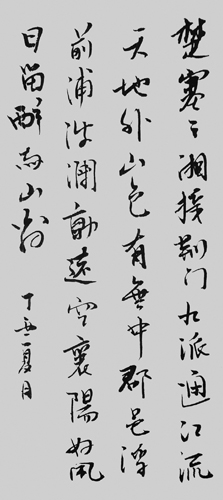 楚塞三湘接荆门九派通江流
天地外山色有無中郡邑浮
前浦波澜動遠空襄陽好風
日留醉与山翁
丁亥夏月